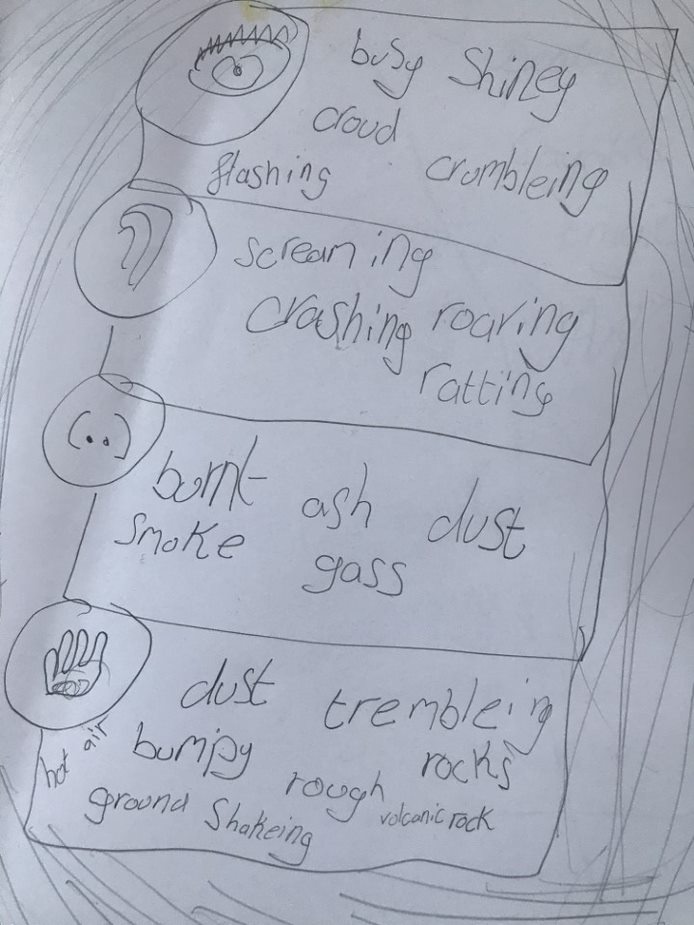 busy Shiney
croud
flashing crumbleing
screaming
crashing roaring
ratting
burnt ash dust
smoke gass
dust trembleing
hot air bumpy rocks
rough
ground Shakeing volcanic rock